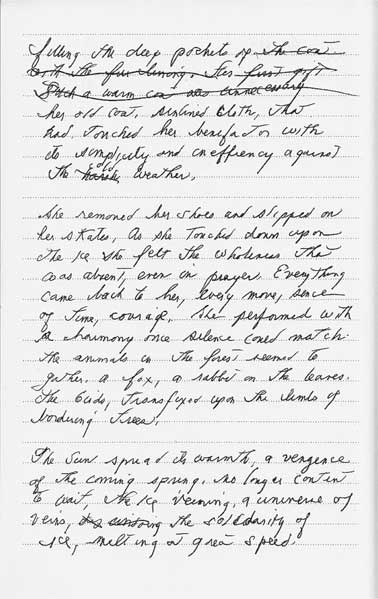 filling the deep pockets of the coat
with the fur lining. Her first gift
Such a warm coat was unnecessary
her old coat, unlined cloth, that
had touched her benefactor with
its simplicity and inefficency against
the cold weather.
She removed her shoes and slipped on
her skates. As she touched down upon
the ice she felt the wholeness that
was absent, even in prayer. Everything
came back to her, every move, sense
of time, courage. She performed with
a harmony once silence could match.
the animals in the forest seemed to
gather. a fox, a rabbit on the leaves.
the birds, transfixed upon the limbs of
bordering trees.
The sun spread its warmth, a vengence
of the coming spring. no longer content
to wait, the ice veining, a universe of
veins, the solidarity of
ice, melting at great speed.